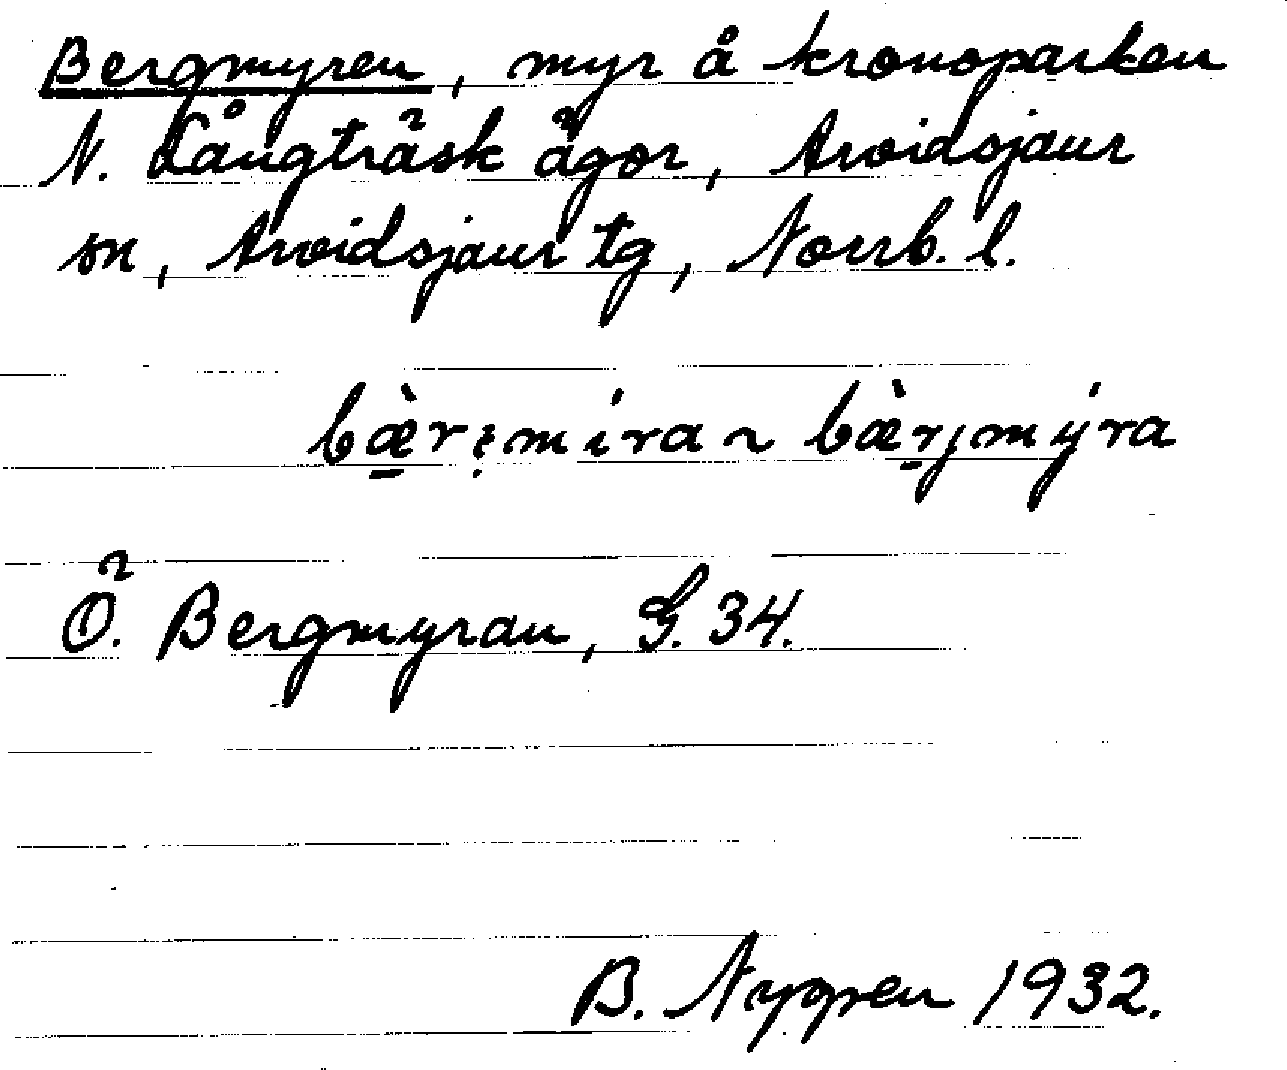 Bergmyren, myr å kronoparken
N. Långträsk ägor, Arvidsjaur
sn, Arvidsjaur tg, Norrb. l.
bæ̀rmira ~ bæ̀rjmýra
Ö. Bergmyran, G. 34.
B. Nygren 1932.